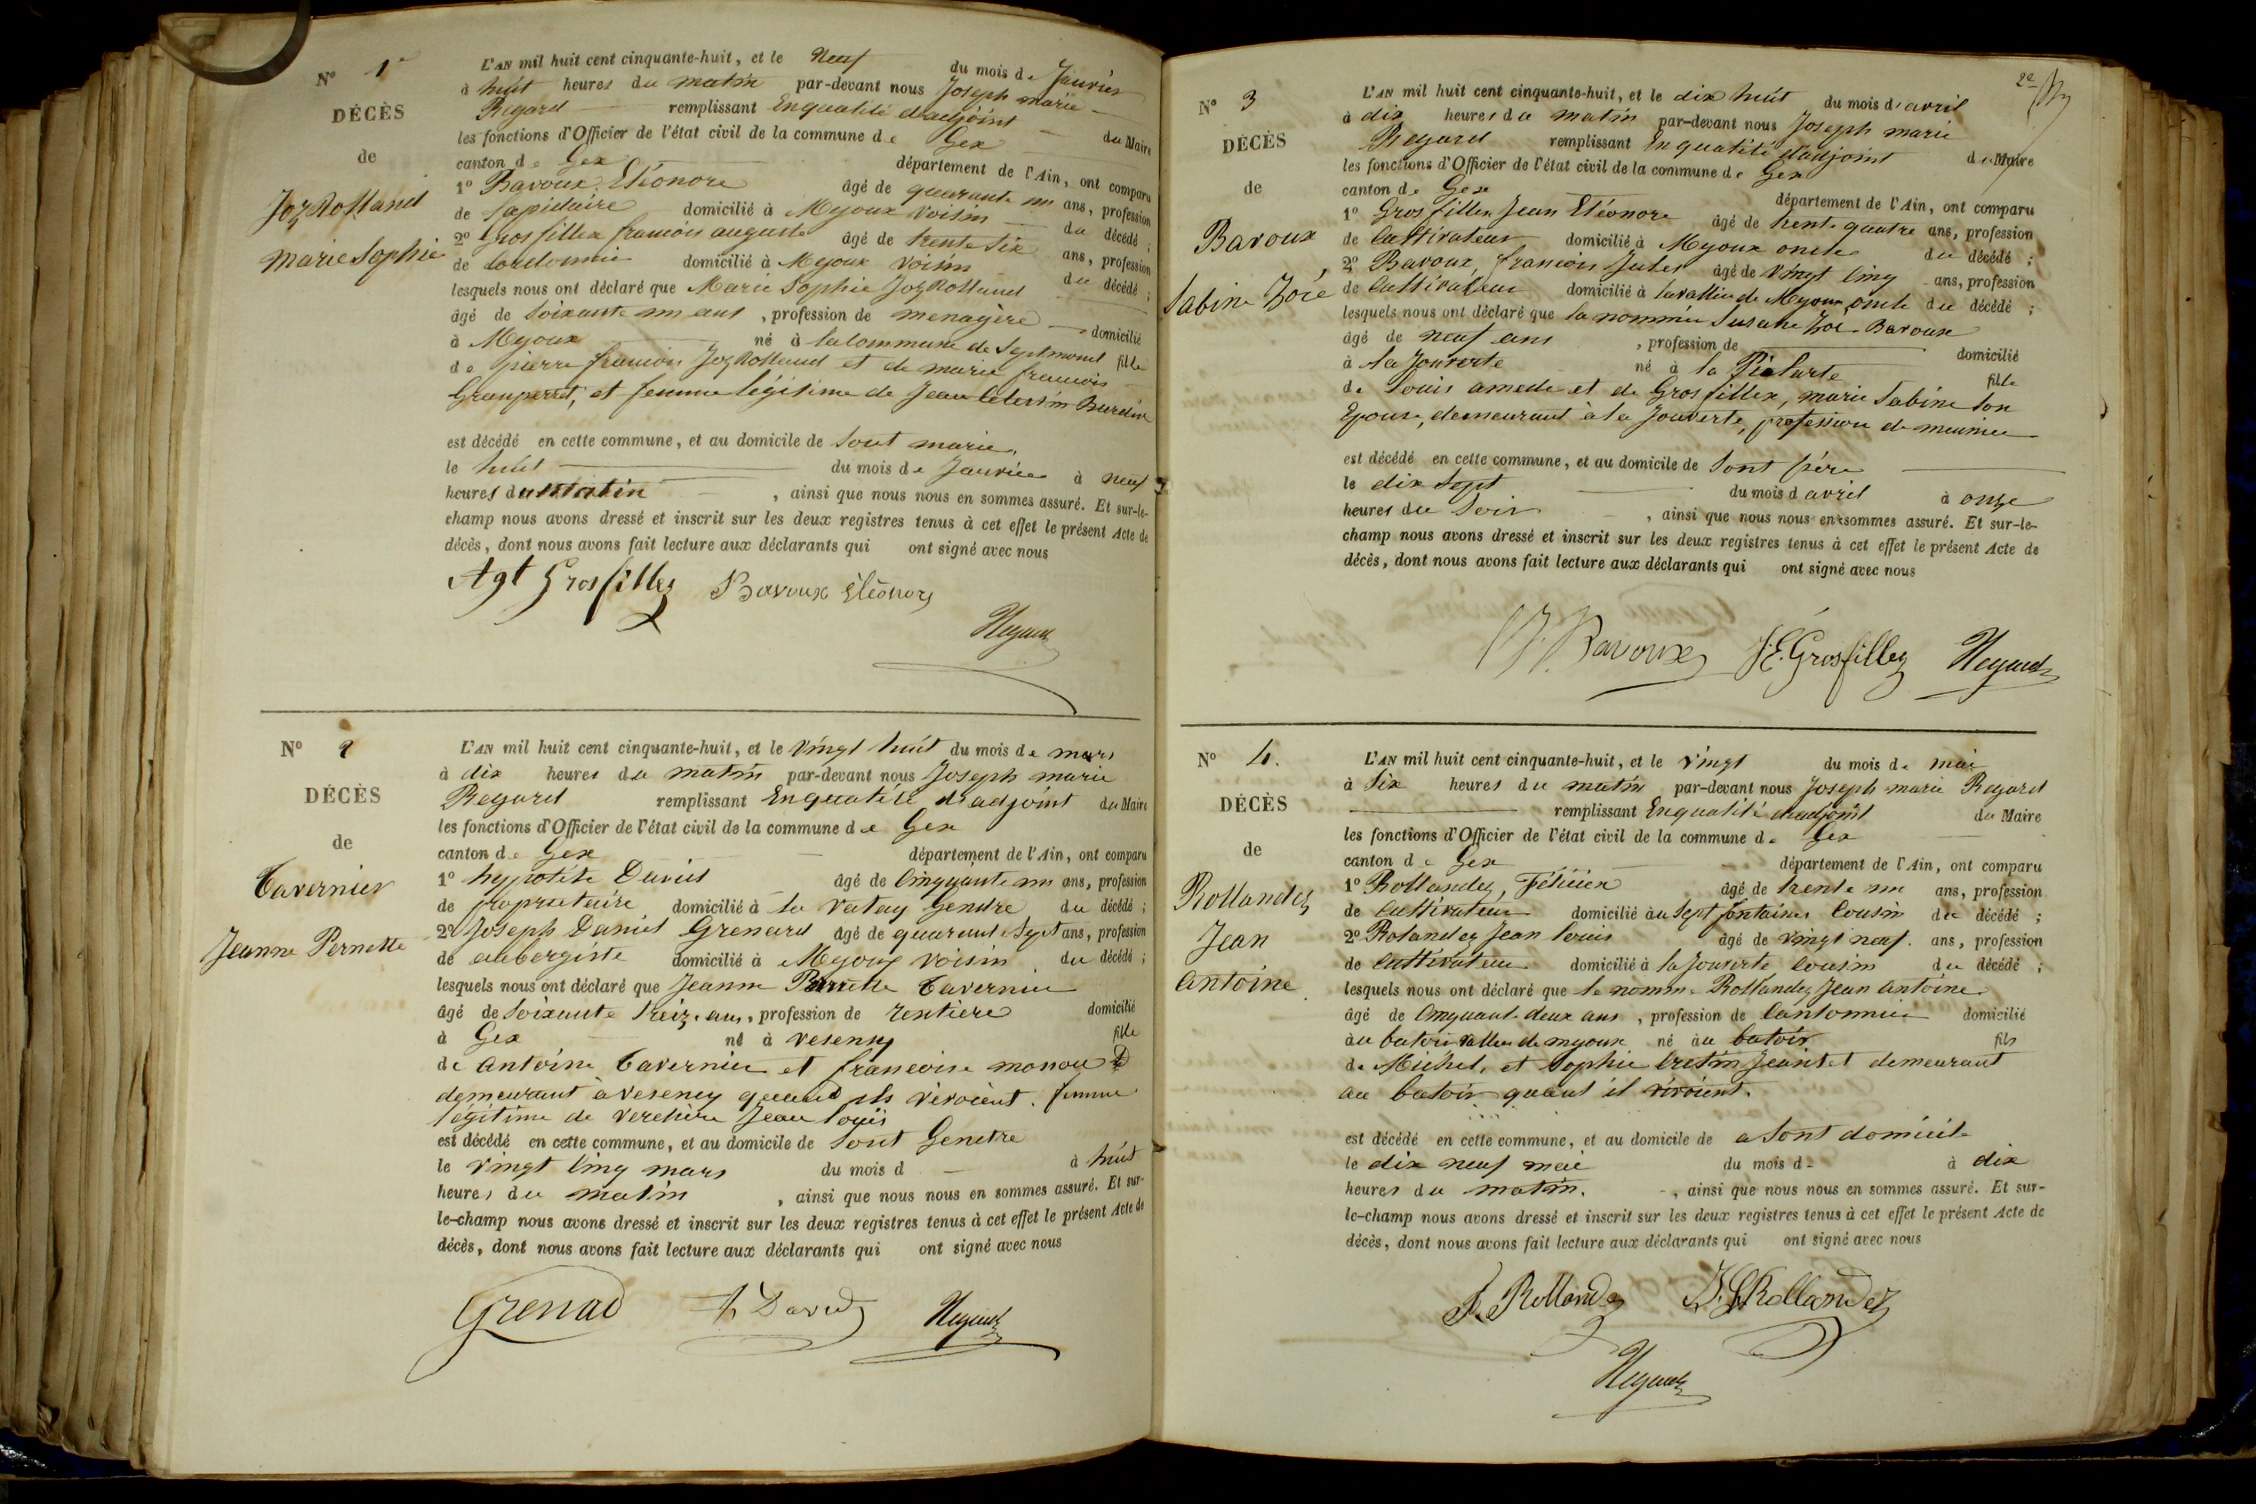 N° 1er
DÉCÈS
de
Joz Rolland
Marie Sophie
L'AN mil huit cent cinquante-huit, et le Neuf du mois de Janvier
à huit heures du matin par-devant nous Joseph marie
Regard remplissant Enqualité d'adjoint du Maire
les fonctions d'Officier de l'état civil de la commune de Gex
canton de Gex département de l'Ain, ont comparu
1° Bavoux Eléonore âgé de quarante un ans, profession
de Lapidaire domicilié à Myoux voisin du décédé ;
2° Grosfillex francois auguste âgé de trente six ans, profession
de Cordonnier domicilié à Myoux voisin du décédé ;
lesquels nous ont déclaré que Marie Sophie Joz Rolland
âgé de soixante un ans, profession de menagère domicilié
à Myoux né à la Commune de Septmoncel fille
de pierre francois Joz Rolland et de marie francois
Grandperret, et femme légitime de Jean Celestin Burdin
est décédé en cette commune, et au domicile de sont marie,
le huit du mois de Janvier à neuf
heures du matin, ainsi que nous nous en sommes assuré. Et sur-le-
champ nous avons dressé et inscrit sur les deux registres tenus à cet effet le présent Acte de
décès, dont nous avons fait lecture aux déclarants qui ont signé avec nous
Agt Grosfillex Bavoux Eléonore
Regard
N° 2
DÉCÈS
de
Tavernier
Jeanne Pernette
L'AN mil huit cent cinquante-huit, et le vingt huit du mois de mars
à dix heures du matin par-devant nous Joseph marie
Regard remplissant Enqualité d'adjoint du Maire
les fonctions d'Officier de l'état civil de la commune de Gex
canton de Gex département de l'Ain, ont comparu
1° hypolite David âgé de Cinquante un ans, profession
de propriétaire domicilié à la vatay Gendre du décédé ;
2° Joseph Daniel Grenard âgé de quarante Sept ans, profession
de aubergiste domicilié à Myoux voisin du décédé ;
lesquels nous ont déclaré que Jeanne Pernette Tavernier
âgé de soixante treize ans, profession de rentière domicilié
à Gex né à vesency fille
de Antoine Tavernier et francoise monou D
demeurant à vesency quand ils vivoient. femme
légitime de verchère Jean louis
est décédé en cette commune, et au domicile de sont Gendre
le vingt Cinq mars du mois d à huit
heures du matin, ainsi que nous nous en sommes assuré. Et sur-
le-champ nous avons dressé et inscrit sur les deux registres tenus à cet effet le présent Acte de
décès, dont nous avons fait lecture aux déclarants qui ont signé avec nous
Grenad h David Regard
22
N° 3
DÉCÈS
de
Bavoux
Sabine Zoïé
L'AN mil huit cent cinquante-huit, et le dix huit du mois d'avril
à dix heures du matin par-devant nous Joseph marie
Regard remplissant Enqualité d'adjoint du Maire
les fonctions d'Officier de l'état civil de la commune de Gex
canton de Gex département de l'Ain, ont comparu
1° Grosfillex Jean Eléonore âgé de trente quatre ans, profession
de Cultivateur domicilié à Myoux oncle du décédé ;
2° Bavoux francois Jules âgé de vingt Cinq ans, profession
de Cultivateur domicilié à lavallée de Myoux oncle du décédé ;
lesquels nous ont déclaré que la nommée Susane Zoé Bavoux
âgé de neuf ans, profession de domicilié
à la Jouverte né à la fille
de Louis amede et de Grosfillex, marie Sabine son
Epouse, demeurant à la Jouverte, profession de meunier
est décédé en cette commune, et au domicile de sont père
le dix sept du mois d avril à onze
heures du Soir, ainsi que nous nous en sommes assuré. Et sur-le-
champ nous avons dressé et inscrit sur les deux registres tenus à cet effet le présent Acte de
décès, dont nous avons fait lecture aux déclarants qui ont signé avec nous
Bavoux J.E. Grosfillex Regard
N° 4.
DÉCÈS
de
Rollandez
Jean
Antoine
L'AN mil huit cent cinquante-huit, et le vingt du mois de mai
à Six heures du matin par-devant nous Joseph marie Regard
remplissant Enqualité d'adjoint du Maire
les fonctions d'Officier de l'état civil de la commune de Gex
canton de Gex département de l'Ain, ont comparu
1° Rollandez, Félicien âgé de trente un ans, profession
de Cultivateur domicilié au Sept fontaines Cousin du décédé ;
2° Rolandez Jean louis âgé de vingt neuf. ans, profession
de Cultivateur domicilié à la Jouverte Cousin du décédé ;
lesquels nous ont déclaré que le nomme Rollandez Jean Antoine
âgé de Cinquante deux ans, profession de Cantonnier domicilié
à au batoir vallée de myoux né au batoir fils
de Michel, et Sophie Cretin Jeantet demeurant
au batoir quant il vivoient.
est décédé en cette commune, et au domicile de a sont domicile
le dix neuf mai du mois d à dix
heures du matin., ainsi que nous nous en sommes assuré. Et sur-
le-champ nous avons dressé et inscrit sur les deux registres tenus à cet effet le présent Acte de
décès, dont nous avons fait lecture aux déclarants qui ont signé avec nous
F. Rollandez J.L. Rollandez
Regard